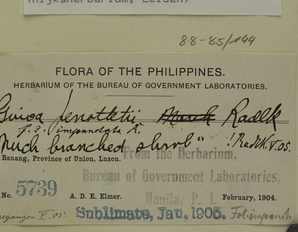 (Rijksherbarium, Leiden)
88-85/144
FLORA OF THE PHILIPPINES.
HERBARIUM OF THE BUREAU OF GOVERNMENT LABORATORIES.
Guioa Radlk
"Much branched shrub" Radlk. V. 05.
Bauang, Province of Union, Luzon.
From the Herbarium,
Bureau of Government Laboratories,
Manila, P. I.
No. 5739 A. D. E. Elmer. February, 1904.
Sublimate, Jan. 1905.
V. 05.